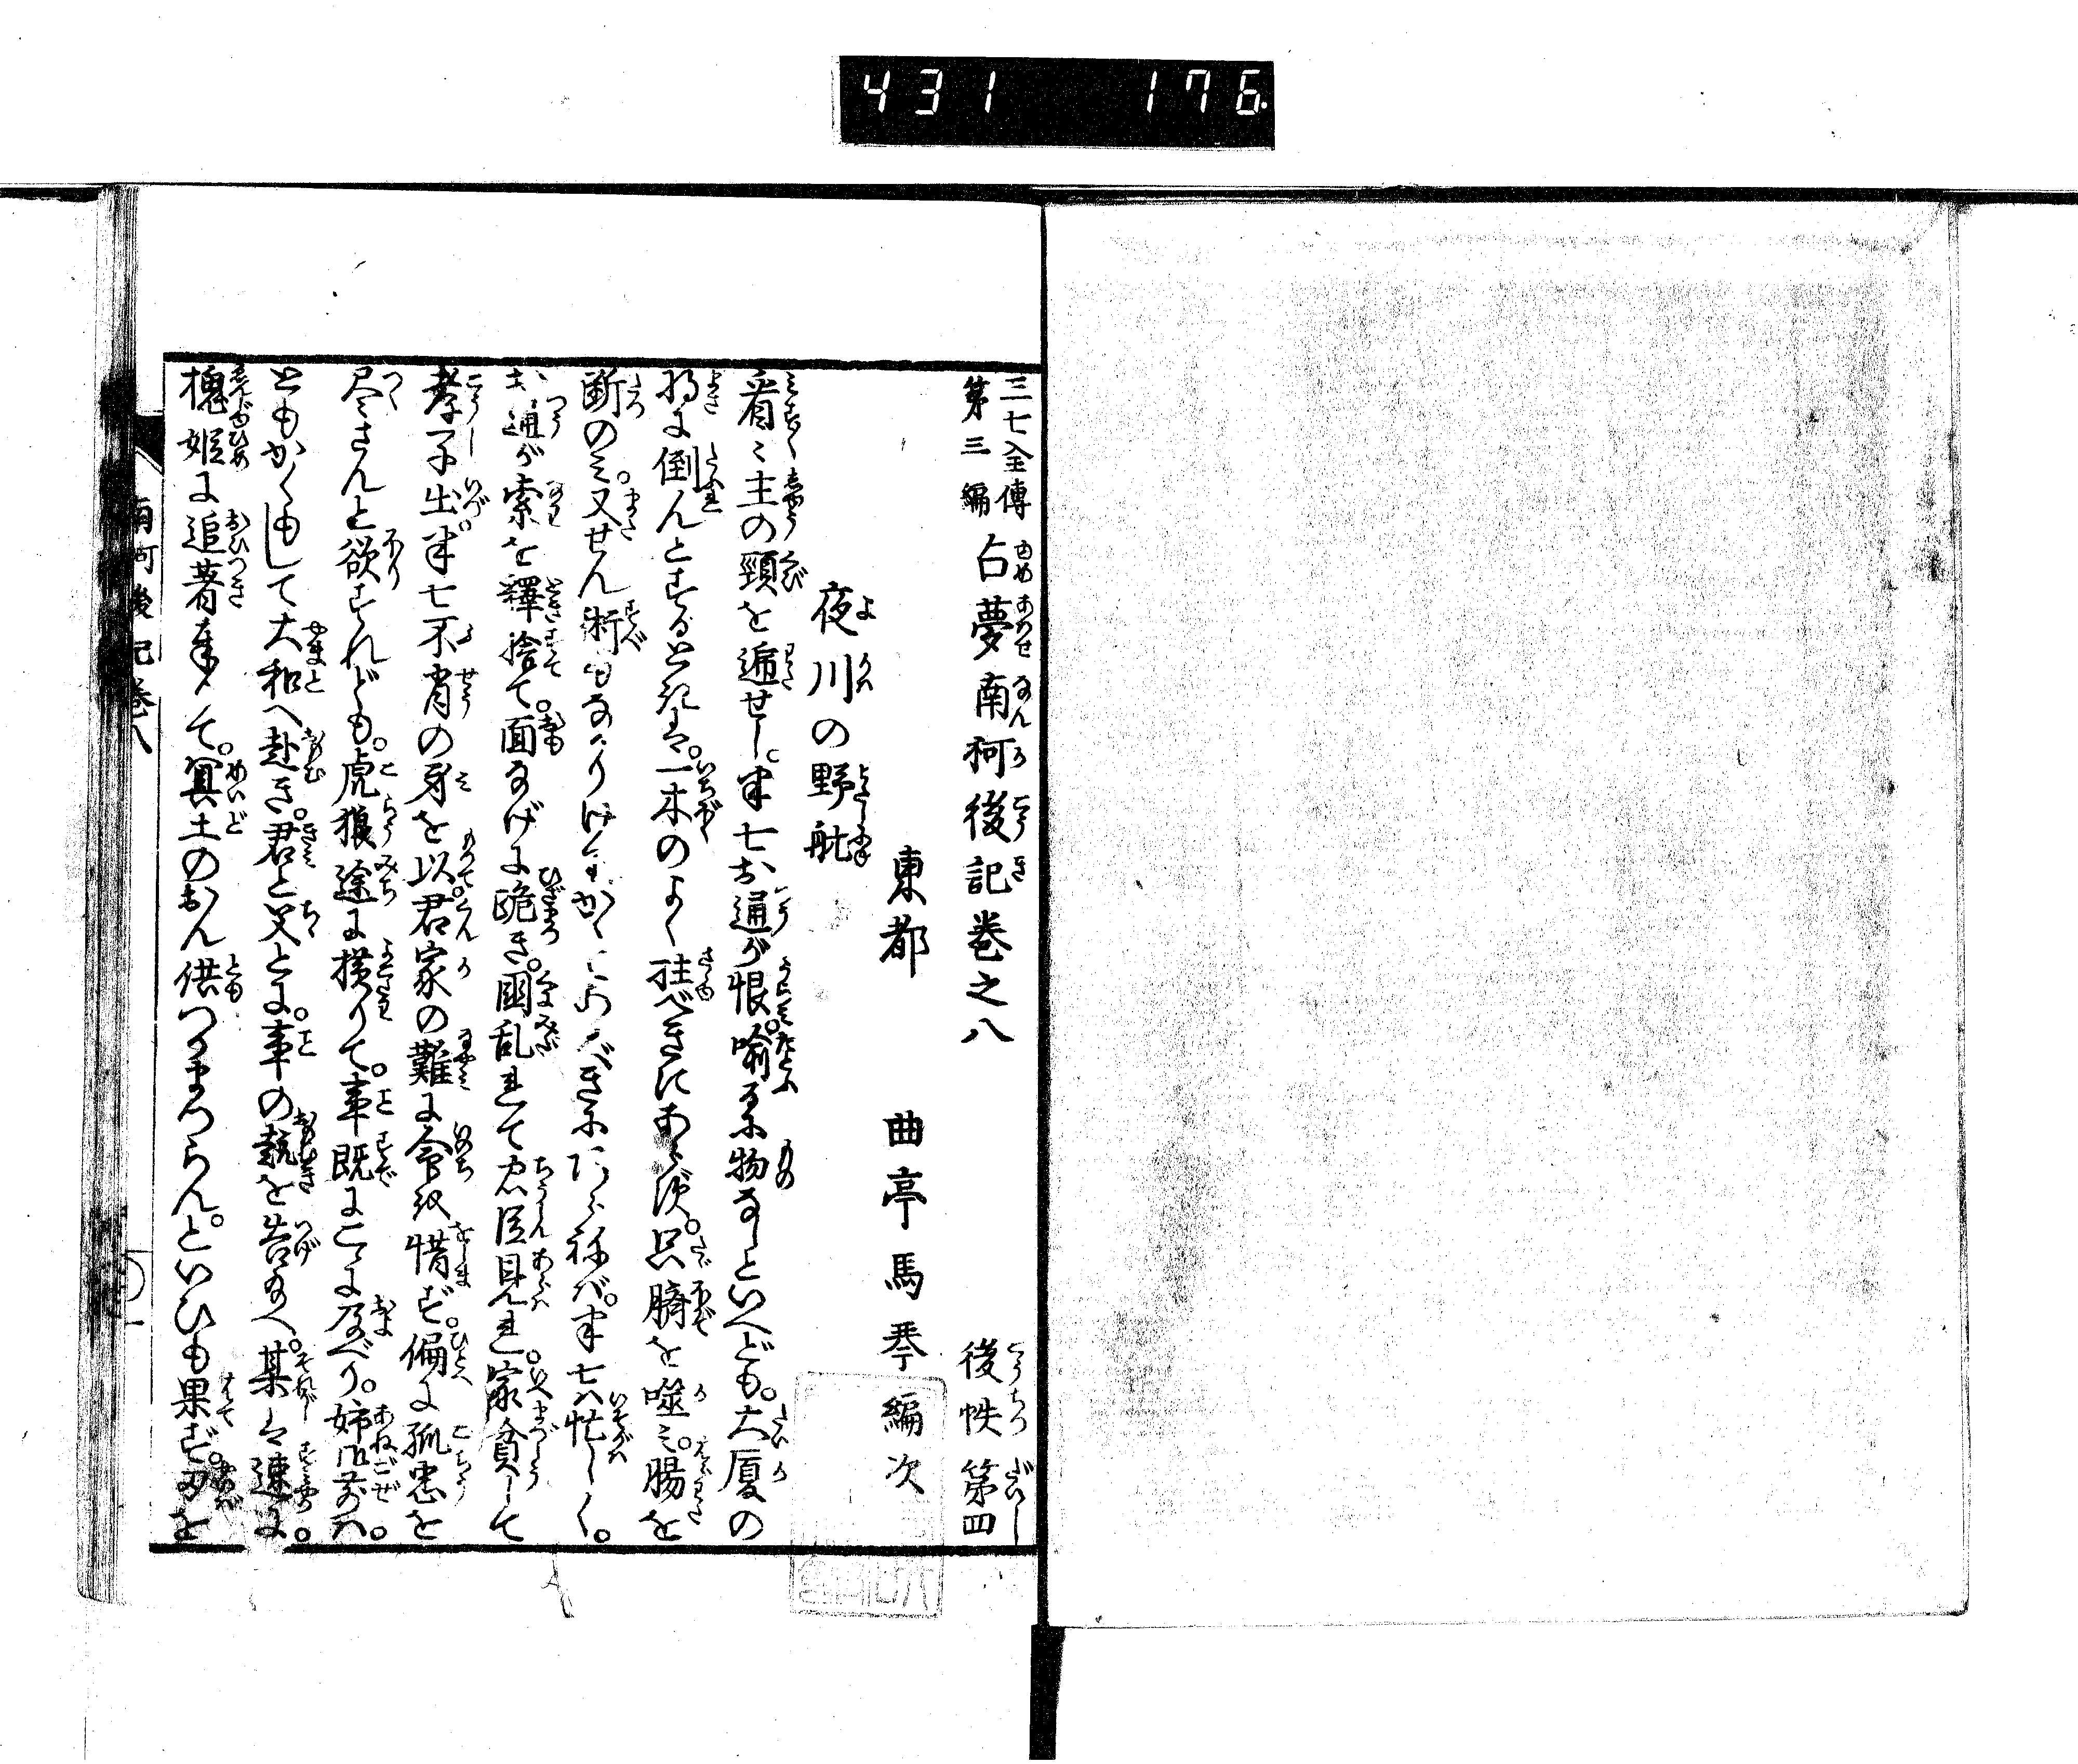 431 176
三七全傳
第三編
占夢南柯後記巻之八 後帙第四
東都 曲亭馬琴編次
夜川の野舩
看々主の頸を遞せし。半七お通が恨。喩るに物なしといへども。大厦の
将に倒んとするときは。一木のよく拄べきにあらず。只臍を噬み。腸を
断のみ。又せん術もなかりけり。かくてあるべきにあらねば。半七は忙しく。
お通が索を釋捨て。面なげに跪き。國乱れて忠臣見れ。家貧して
孝子出。半七不肖の身を以。君家の難に命を惜まず。偏に孤忠を
尽さんと欲すれども。虎狼途に横りて。事既にこゝに及べり。姉御前は。
ともかくもして大和へ赴き。君と父とに。事の趣を告給へ。某は速に。
槐姫に追著奉りて。冥土のおん供つかまつらん。といひも果ず。刃を
南柯後記巻八